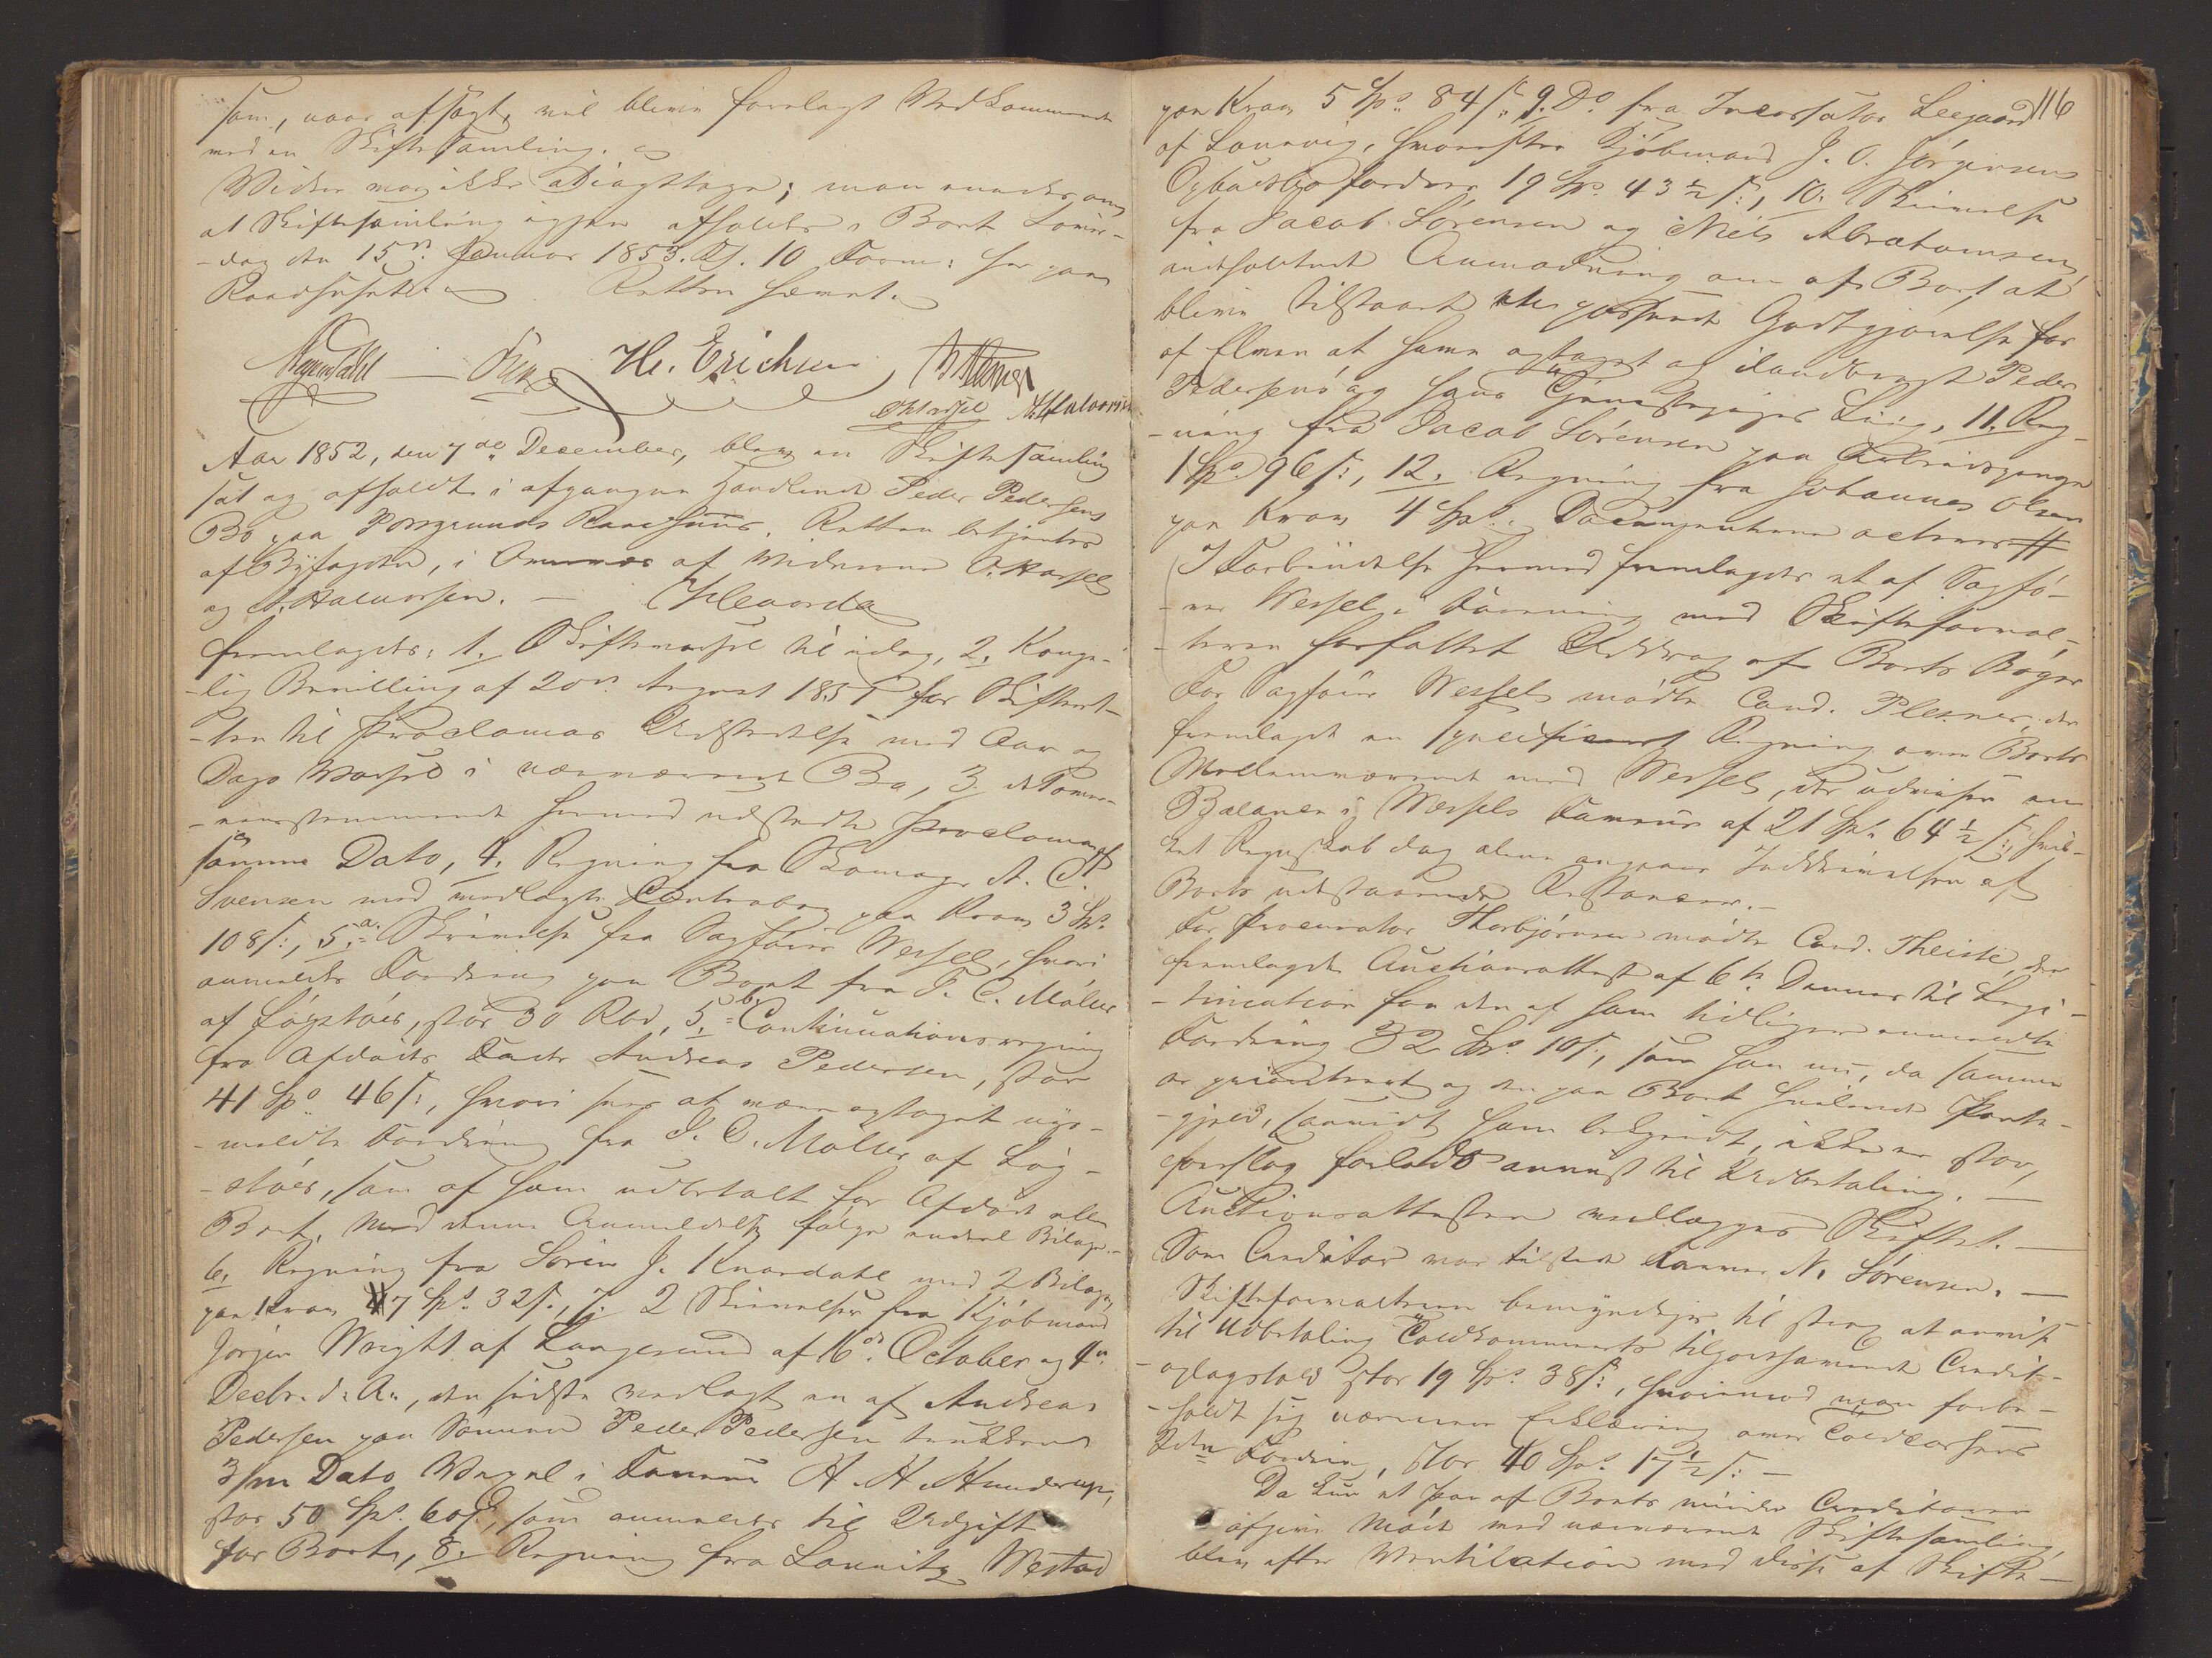 som, naar afsagt, vil blive forelagt Vedkommende
ved en Skiftesamling.
Videre var ikke at iagttage; man eenedes om
at Skiftesamling igjen afholdes i Boet Løver-
-dag den 15de Januar 1853. Kl. 10 Form: her paa
Raadhuset. Retten hævet.
H. Erichsen
O. Kassel A. Halvorsen
Aar 1852, den 7de December, blev en Skiftesamling
sat og afholdt i afgangne Handlende Peder Pedersens
Bo paa Porsgrunds Raadhuus. Retten betjentes
af Byfogden, i Overvær af Vidnerne O. Kassel
og A. Halvorsen. –
fremlagdes: 1. Skiftevarsel til idag, 2. Konge-
-lig Bevilling af 20de August 1851 for Skifteret-
-ten til Proclamas Udstedelse med Aar og
Dags Varsel i nærværende Bo, 3. det
-eensstemmende hermed udstedte Proclama af
samme Dato, 4. Regning fra Skomager A. C.
Svensen med vedlagte Contrabog paa Krav 3 Spd.
108 s:, 5.a. Skrivelse fra Sagfører Wessel, hvori
anmeldes Fordring paa Boet fra J. C. Møller
af Løgstøer, stor 30 Rbd, 5.b. Continuationsregning
fra Afdødes Fader Andreas Pedersen, stor
41 Spd. 46 s:, hvori siges at være optaget nys-
-meldte Fordring fra J. C. Møller af Løg-
-støer, som af ham udbetalt for Afdøde eller
Boet. Med denne Anmeldelse følger endeel Bilage. –
6. Regning fra Søren J. Knardahl med 2 Bilage,
paa Krav 7 Spd. 32 s., 7. 2 Skrivelser fra Kjøbmand
Jørgen Wright af Langesund af 16de October og 4de
Decbr. d. A., den sidste vedlagt en af Andreas
Pedersen paa Sønnen Peder Pedersen trukken
3/m Dato Vexel i Faveur A. H. Hunderup,
stor 50 Spd. 60 s., som anmeldes til Udgift
for Boet, 8. Regning fra Lounitz Westad
116
paa Krav 5 Spd. 84 s:, 9. Do. fra Incassator Leegaard
af Laurvig, hvorefter Kjøbmand J. O. Jørgensens
Opbudsbo fordrer 19 Spd. 43 ½ s:, 10. Skrivelse
fra Jacob Sørensen og Niels Abrahamsen,
indeholdende Anmodning om af Boet at
blive tilstaaet passende Godtgjørelse for
af Elven at have optaget og ilandbragt Peder
Pedersens og hans Tjenestepiges Liig, 11. Reg-
-ning fra Jacob Sørensen paa Arbeidspenge
1 Spd. 96 s:, 12. Regning fra Johannes Olsen
paa Krav 4 Spd. Documenterne acteres
I Forbindelse hermed fremlagdes et af Sagfø-
-rer Wessel i Forening med Skifteforval-
-teren forfattet Uddrag af Boets Bøger
For Sagfører Wessel mødte Cand. Plesner, der
fremlagde en specificeret Regning over Boets
Mellemværende med Wessel, der udviser en
Balance i Wessels Faveur af 21 Spd. 64 ½ s:, hvil-
-ket Regnskab dog alene angaaer Inddrivelsen af
Boets udestaaende Restancer. –
For Procurator Thorbjørnsen mødte Cand. Theiste, der
fremlagde Auctionsattest af 6te Januar til Legi-
-timation for den af ham tidligere anmeldte
Fordring 32 Spd. 10 s:, som han nu, da samme
er prioriteret og den paa Boet hvilende Pante-
-gjæld, saavidt ham bekjendt, ikke er stor,
forlods anviist til Udbetaling. –
Auctionsattesten vedlægges Skiftet. –
Som Creditor var tilstede Farver N. Sørensen. –
Skifteforvalteren bemyndiges til strax at anvise
til Udbetaling Toldkommerts tilgodehavende Credit-
-oplagstold stor 19 Spd. 38 s:, hvorimod man forbe-
-holdt sig nærmere Erklæring over Toldcassens
anden Fordring, stor 40 Spd. 17 ½ s: –
Da kun et par af Boets mindre Creditorer
afgive Møde ved nærværende Skiftesamling,
blev efter Ventilation med disse af Skifte-